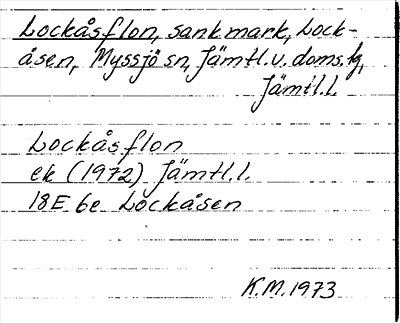 Lockåsflon, sank mark, Lock-
åsen, Myssjö sn, Jämtl.v. doms.g,
Jämtl.l.
Lockåsflon
ek (1972) Jämtl.l.
18E 6e Lockåsen
K.M.1973